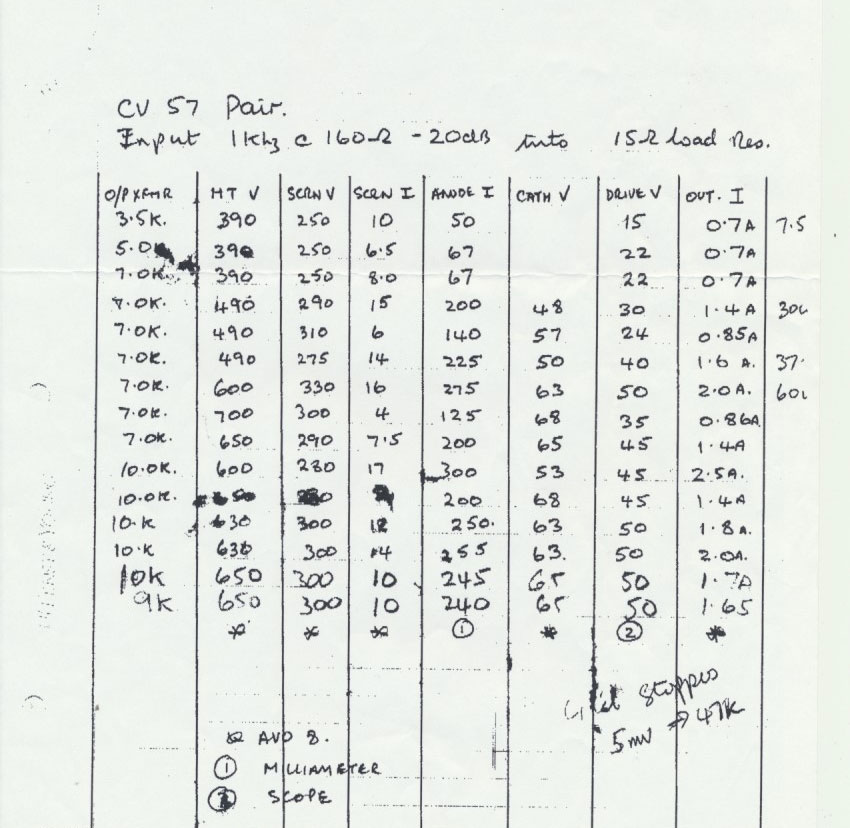 CV 57 Pair.
Input 1KHz @ 160Ω -20dB into 15Ω load Res.
O/P XFMR HT V SCRN V SCRN I ANODE I CATH V DRIVE V OUT. I
3.5K. 390 250 10 50 15 0.7A 7.5
5.0K 390 250 6.5 67 22 0.7A
7.0K. 390 250 8.0 67 22 0.7A
7.0K. 490 290 15 200 48 30 1.4A
7.0K. 490 310 6 140 57 24 0.85A
7.0K. 490 275 14 225 50 40 1.6 A. 37.
7.0K. 600 330 16 275 63 50 2.0A.
7.0K. 700 300 4 125 68 35 0.86A
7.0K. 650 290 7.5 200 65 45 1.4A
10.0K. 600 280 17 300 53 45 2.5A.
10.0K. 200 68 45 1.4A
10.K 630 300 12 250. 63 50 1.8A.
10.K 630 300 14 255 63. 50 2.0A.
10K 650 300 10 245 65 50 1.7A
9K 650 300 10 240 65 50 1.65
* * * ① * ② *
Grid Stopper
5mV → 47K
* AVO 8.
① MILLIAMETER
② SCOPE